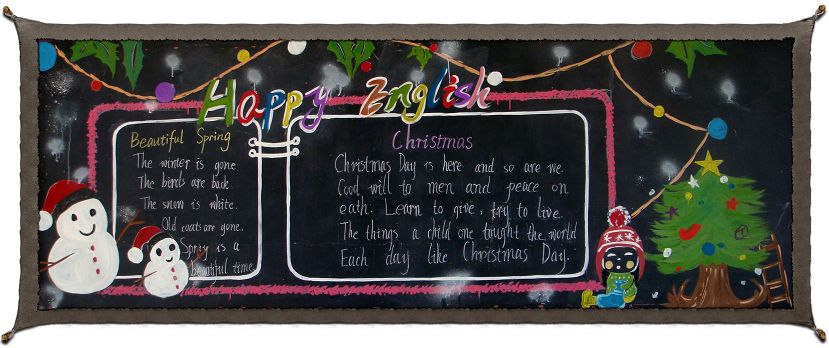 Happy English
Beautiful Spring
The winter is gone.
The birds are back
The snow is white.
Old coats are gone.
Spriy is a
beautiful time
Christmas
Christmas Day is here and so are we.
Good will to men and peace on
eath: Learn to give, try to live.
The things a child one tought the world
Each day like Christmas Day.